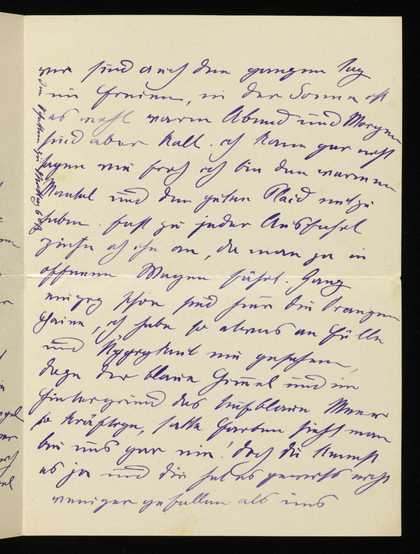 wir sind auch den ganzen Tag
im Freien, in der Sonne ist
es recht warm Abend und Morgen
sind aber kalt. ich kann gar nicht
sagen wie froh ich bin den warmen
Mantel und den guten Plaid mit zu
haben. fast zu jeder Ausfahrt
ziehe ich ihn an, da man ja in
offenem Wagen fährt. Ganz
einzig schön sind hier die Orangen
Haine, ich habe so etwas an Fülle
und Üppigkeit nie gesehen,
dazu der blaue Himmel und im
Hintergrund das tiefblaue Meer
so kräftige, satte Farben sieht man
bei uns gar nie. Doch du kennst
es ja und dir hat es gewiss nicht
weniger gefallen als uns